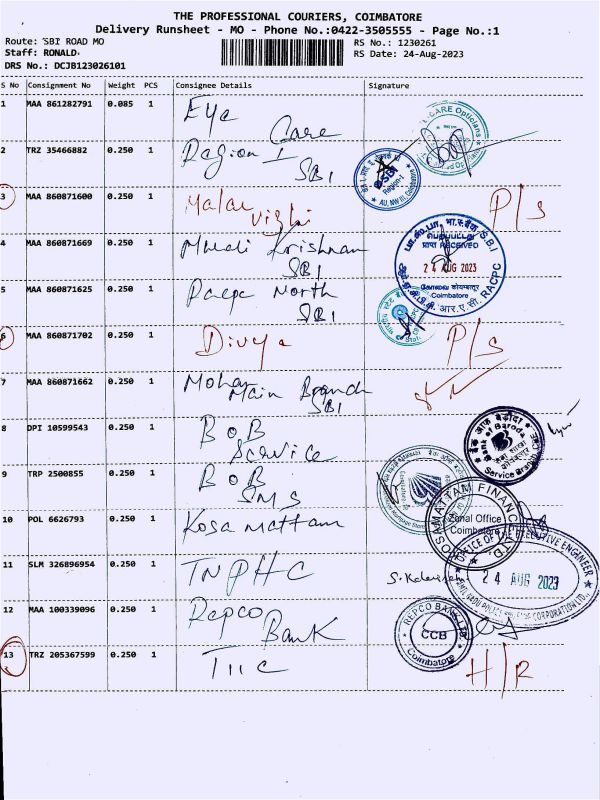 THE PROFESSIONAL COURIERS, COIMBATORE
Delivery Runsheet - MO - Phone No.:0422-3505555 - Page No.:1
Route: SBI ROAD MO
RS No.: 1230261
Staff: RONALD
RS Date: 24-Aug-2023
DRS No.: DCJB123026101
S No Consignment No Weight PCS Consignee Details Signature
1 MAA 861282791 0.085 1 Eye Care
CARE Opticians
2 TRZ 35466882 0.250 1 Region I SBI
SBI
Region-I
3 MAA 860871600 0.250 1 Malar Vizhi P/s
4 MAA 860871669 0.250 1 Krishnan SBI
भा.स्टे.बैंक S.B.I
प्राप्त RECEIVED
24 AUG 2023
Coimbatore
RACPC
5 MAA 860871625 0.250 1 North SBI
6 MAA 860871702 0.250 1 Divya P/s
7 MAA 860871662 0.250 1 Mohan Main Branch SBI
8 DPI 10599543 0.250 1 BOB Service
बैंक ऑफ़ बड़ौदा
Bank of Baroda
Service Branch
9 TRP 2500855 0.250 1 BOB SMS
10 POL 6626793 0.250 1 Kosamattam
KOSAMATTAM FINANCE LTD
Zonal Office
Coimbatore
11 SLM 326896954 0.250 1 TNPHC
OFFICE OF THE EXECUTIVE ENGINEER
24 AUG 2023
TAMIL NADU POLICE HOUSING CORPORATION LTD.
12 MAA 100339096 0.250 1 Repco Bank
REPCO BANK LTD
CCB
Coimbatore
13 TRZ 205367599 0.250 1 TIIC H/R